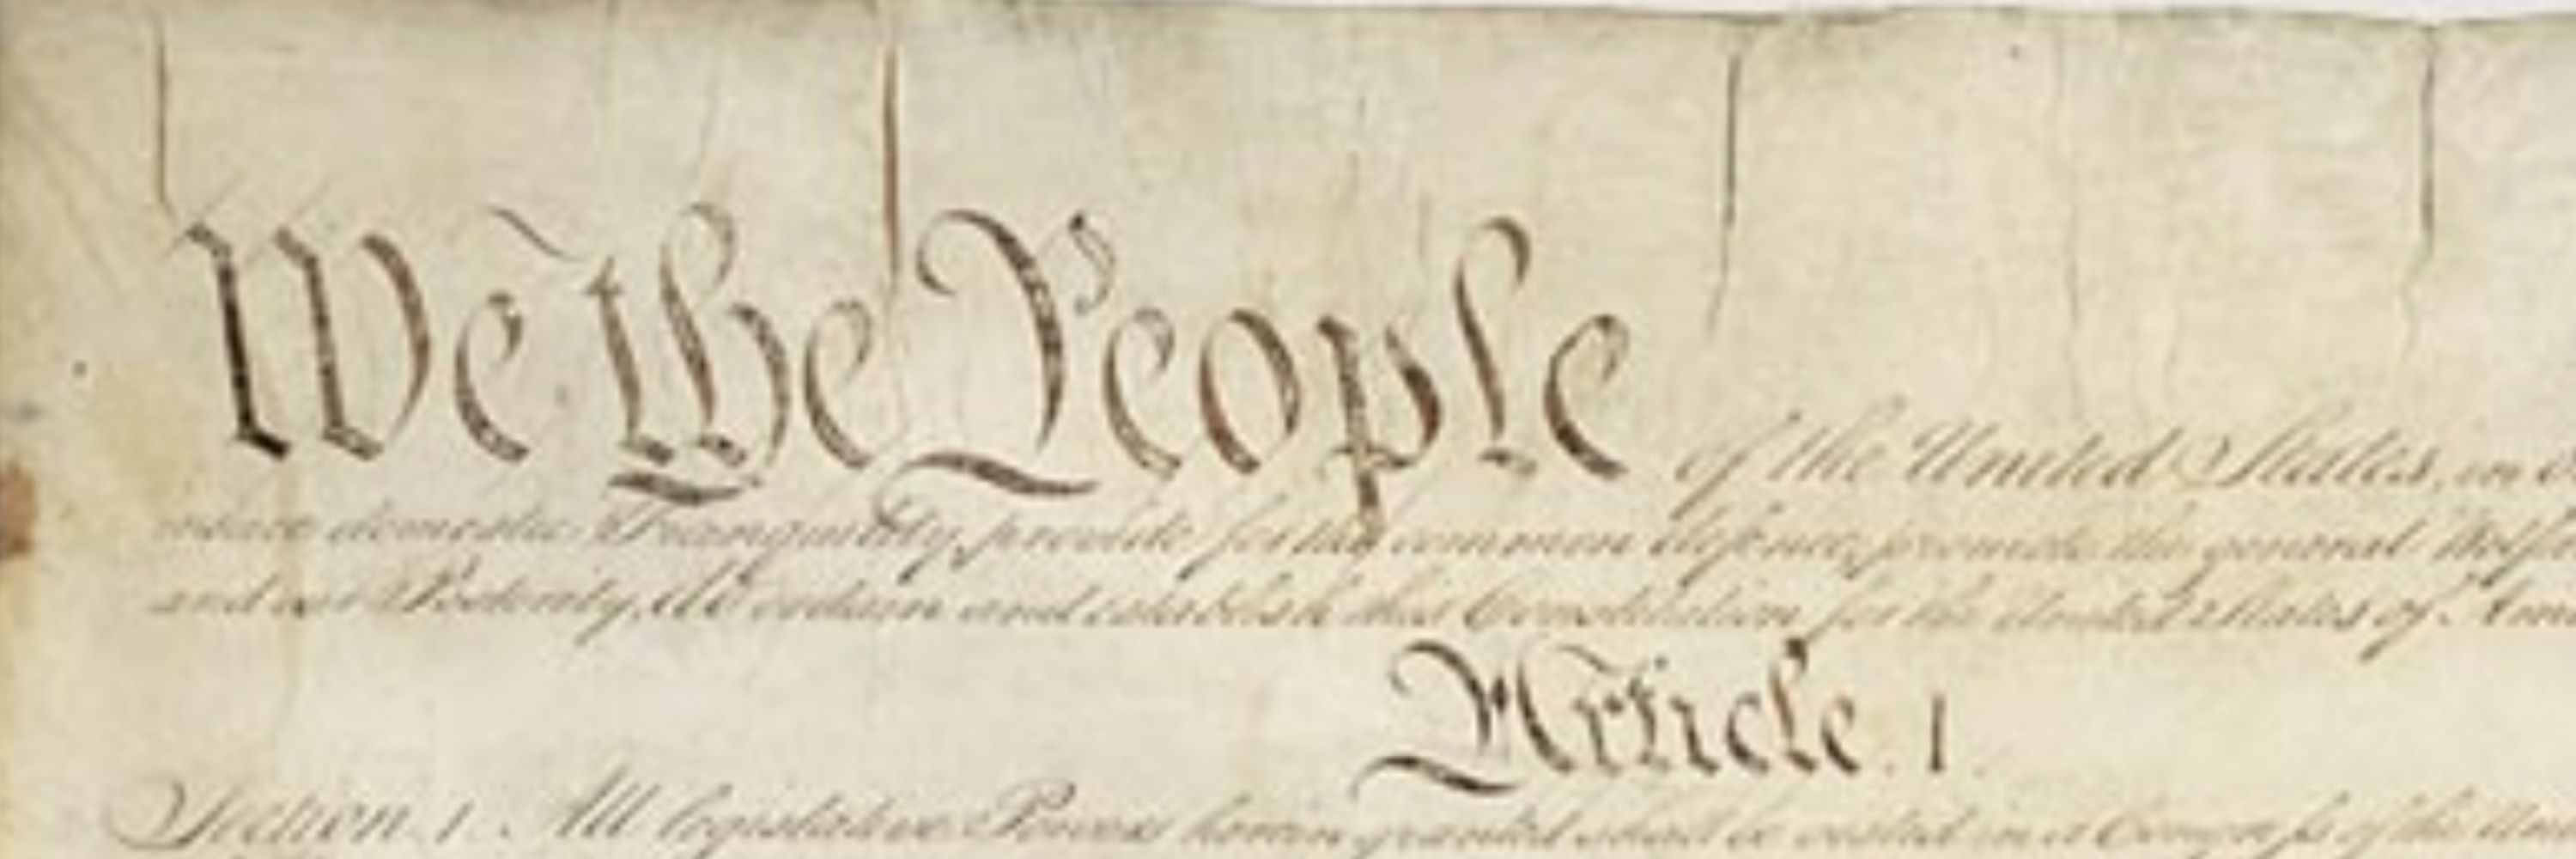 We the People of the United States, in
insure domestic Tranquility, provide for the common defence, promote the general Welfa
and our Posterity, do ordain and establish this Constitution for the United States of Ame
Article. I.
Section. 1. All legislative Powers herein granted shall be vested in a Congress of the Uni